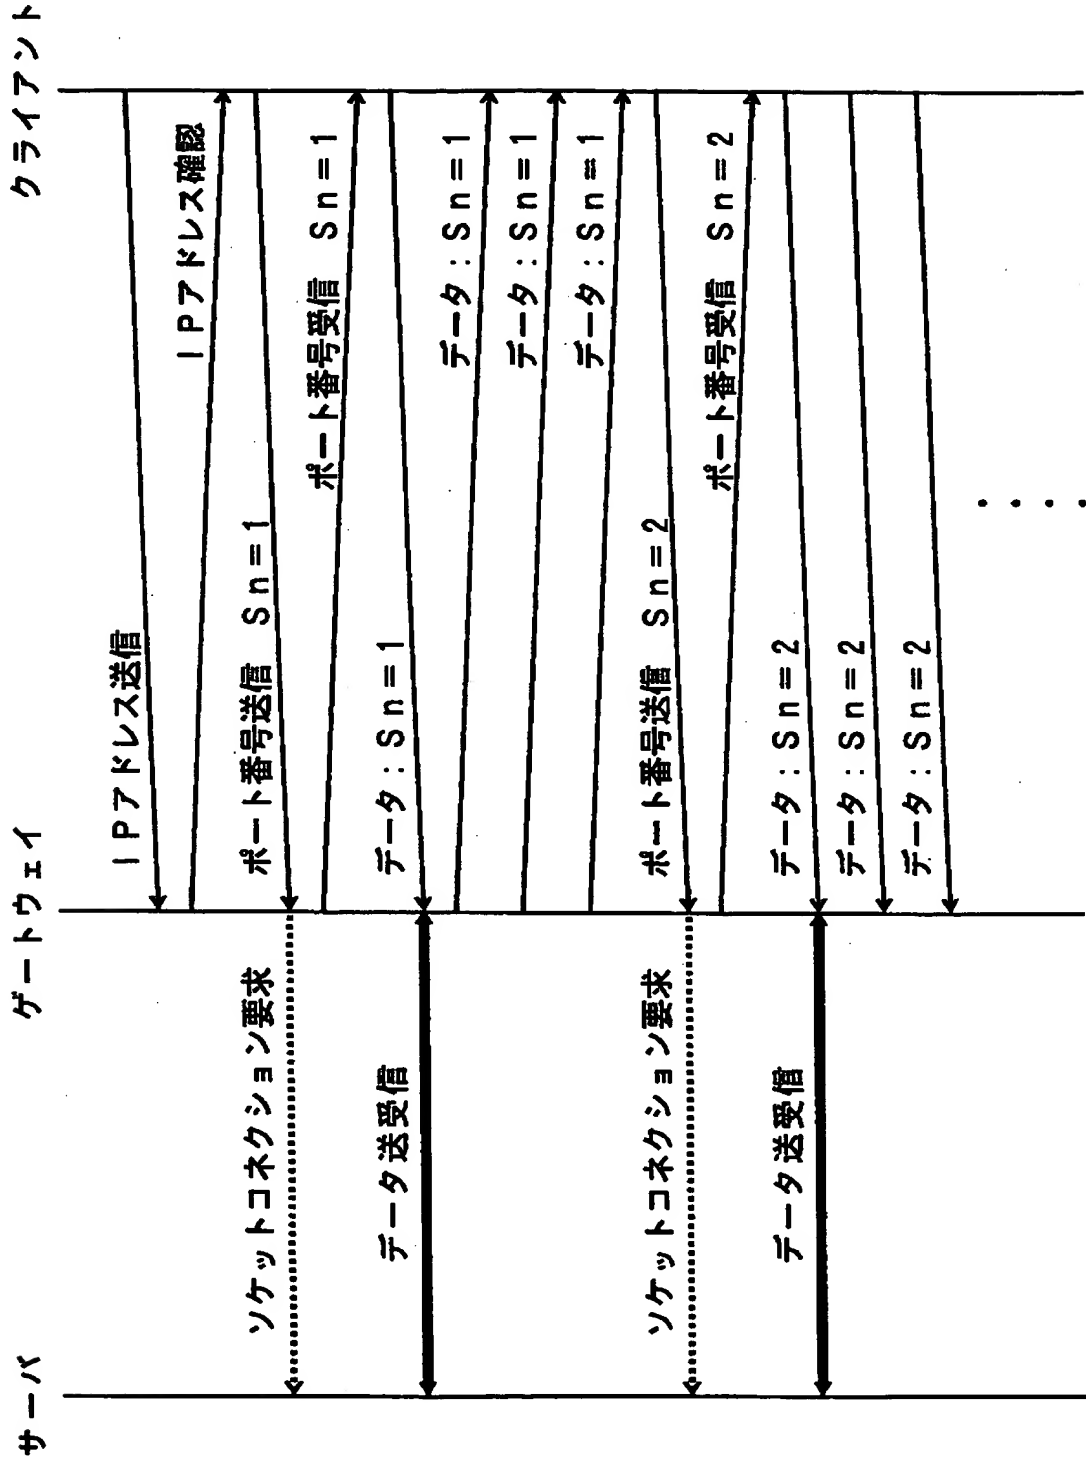 サーバ
ゲートウェイ
クライアント
IPアドレス送信
IPアドレス確認
ポート番号送信 Sn=1
ソケットコネクション要求
ポート番号受信 Sn=1
データ:Sn=1
データ送受信
データ:Sn=1
データ:Sn=1
データ:Sn=1
ポート番号送信 Sn=2
ソケットコネクション要求
ポート番号受信 Sn=2
データ:Sn=2
データ送受信
データ:Sn=2
データ:Sn=2